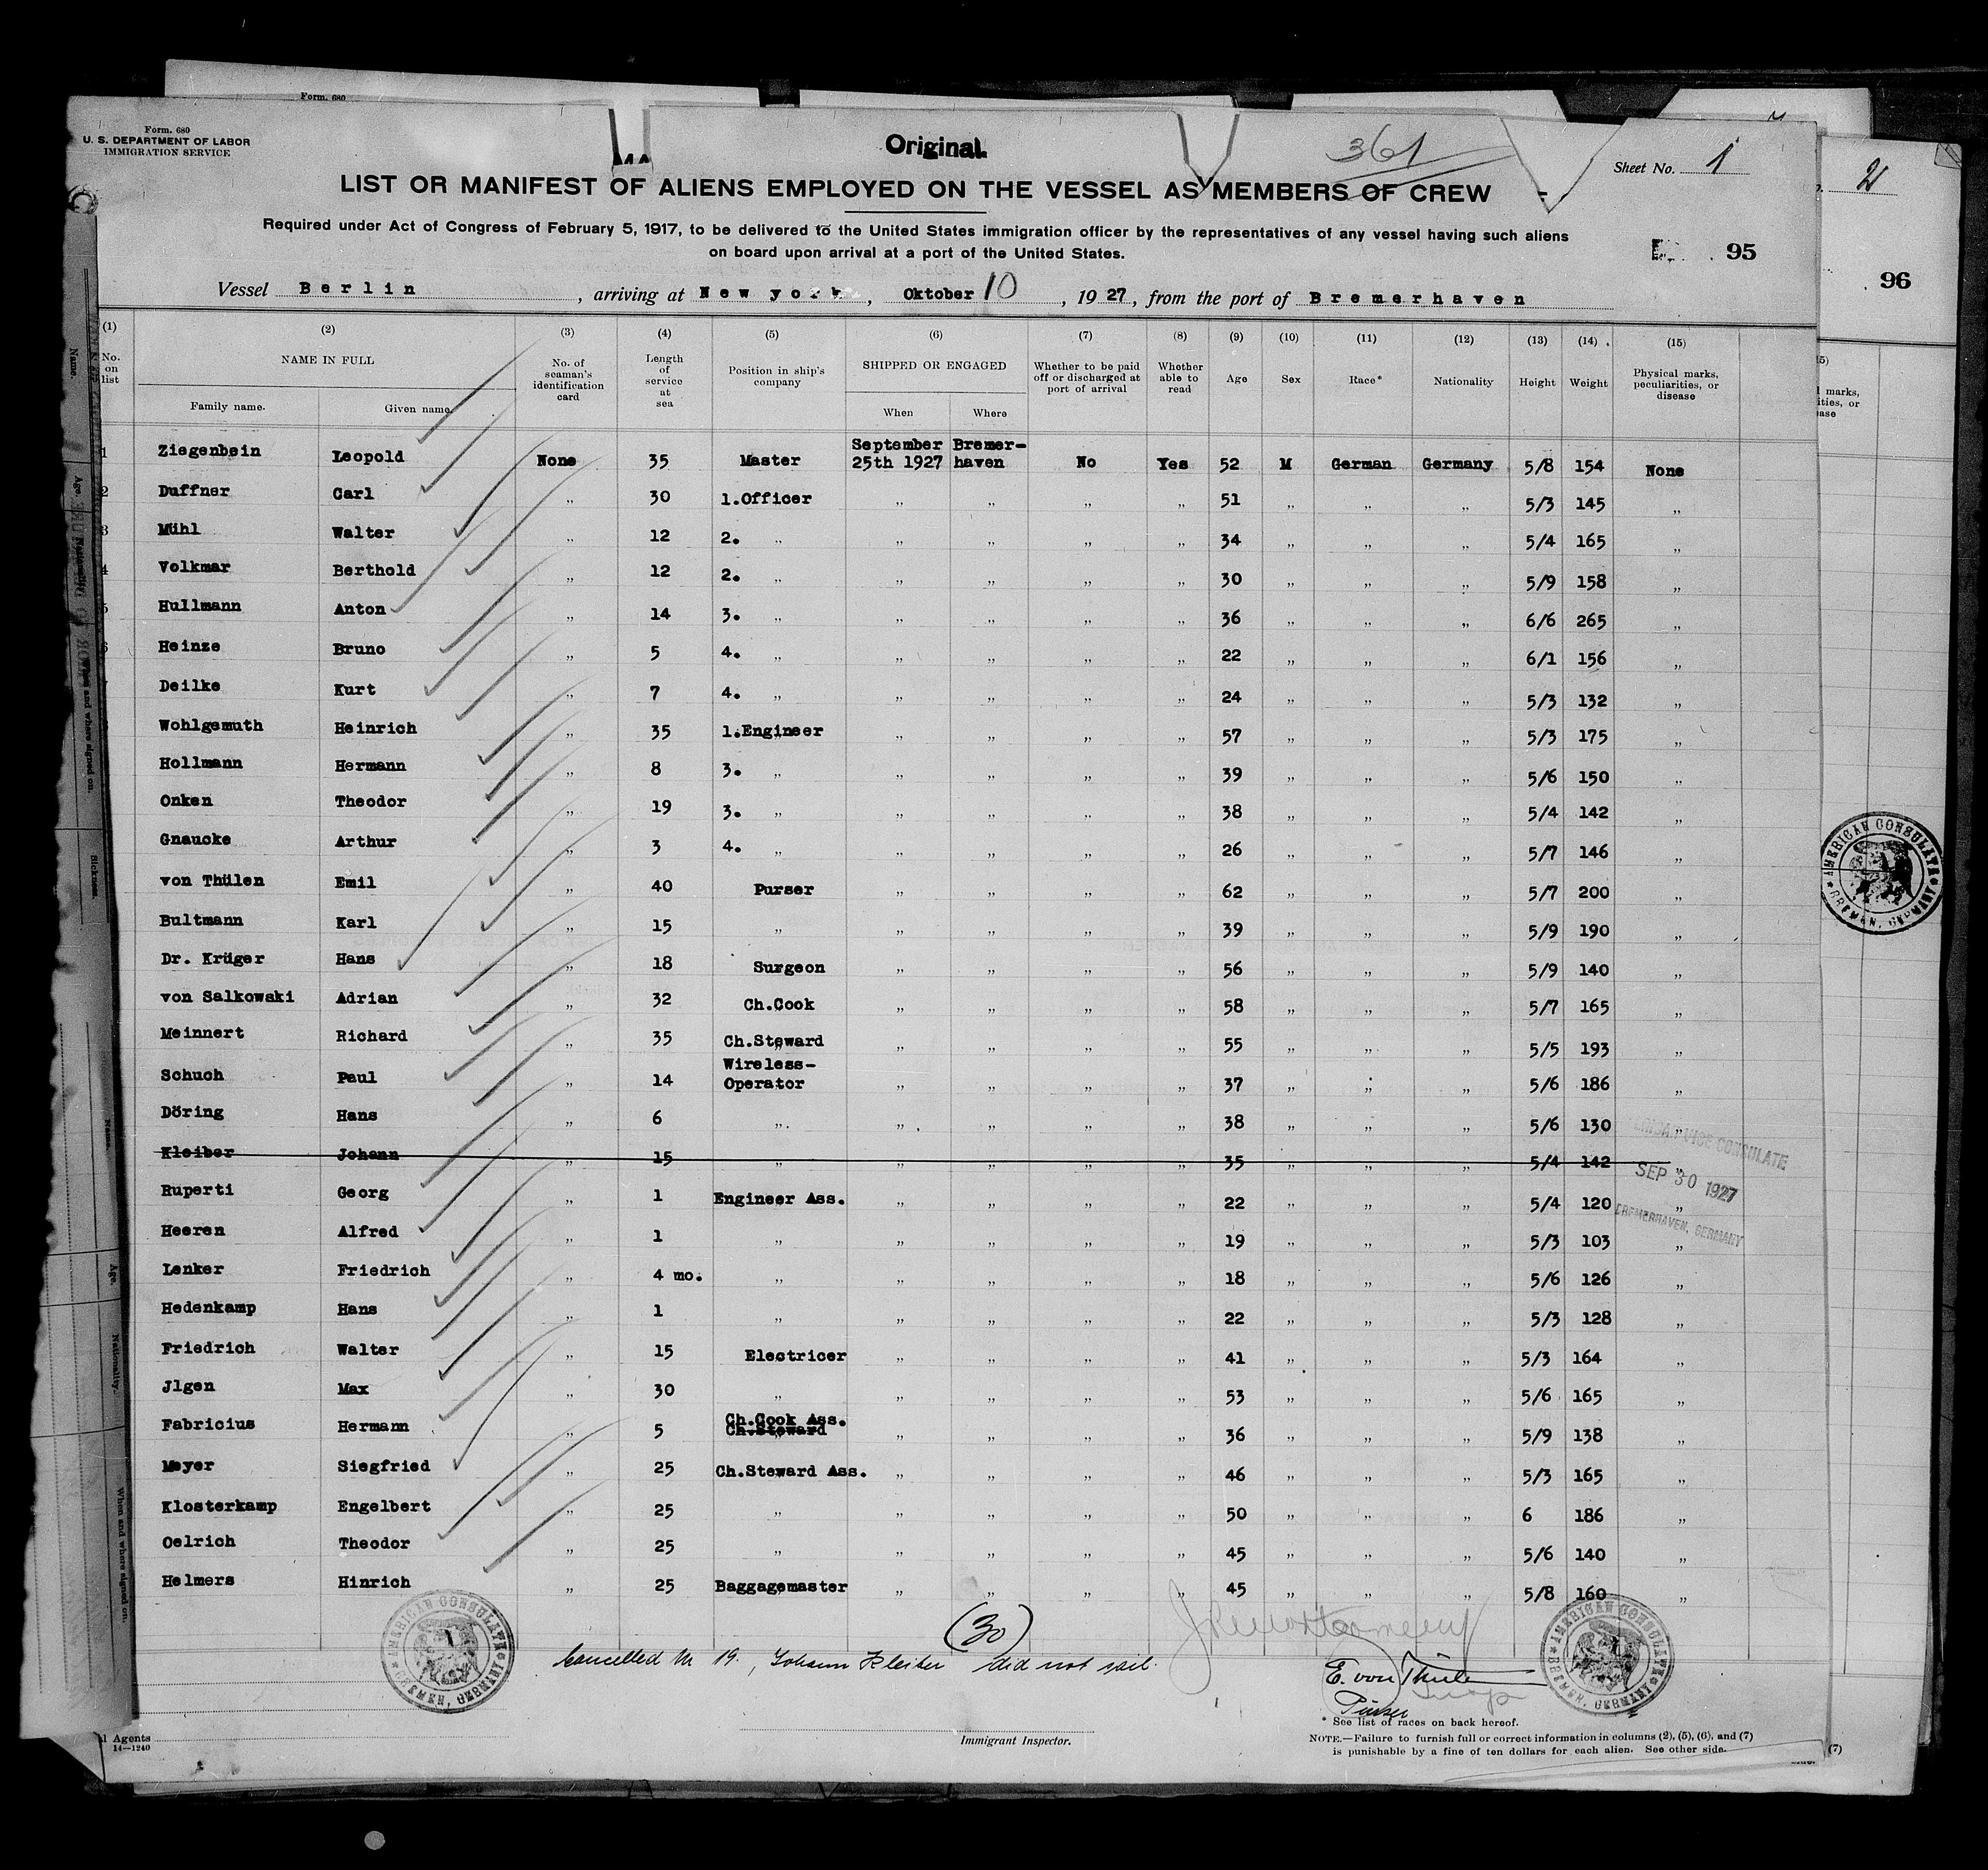 Form. 680
Form. 680
U. S. DEPARTMENT OF LABOR
IMMIGRATION SERVICE
Original
361
Sheet No. 1
2
LIST OR MANIFEST OF ALIENS EMPLOYED ON THE VESSEL AS MEMBERS OF CREW
Required under Act of Congress of February 5, 1917, to be delivered to the United States immigration officer by the representatives of any vessel having such aliens
on board upon arrival at a port of the United States.
95
96
Vessel Berlin, arriving at New york, Oktober 10, 1927, from the port of Bremerhaven
(1) (2) (3) (4) (5) (6) (7) (8) (9) (10) (11) (12) (13) (14) (15)
No. on list
NAME IN FULL
Family name. Given name.
No. of seaman's identification card
Length of service at sea
Position in ship's company
SHIPPED OR ENGAGED
When Where
Whether to be paid off or discharged at port of arrival
Whether able to read
Age
Sex
Race*
Nationality
Height
Weight
Physical marks, peculiarities, or disease
1 Ziegenbein Leopold None 35 Master September 25th 1927 Bremer-haven No Yes 52 M German Germany 5/8 154 None
2 Duffner Carl „ 30 1.Officer „ „ „ „ 51 „ „ „ 5/3 145 „
3 Mühl Walter „ 12 2. „ „ „ „ „ 34 „ „ „ 5/4 165 „
4 Volkmar Berthold „ 12 2. „ „ „ „ „ 30 „ „ „ 5/9 158 „
5 Hullmann Anton „ 14 3. „ „ „ „ „ 36 „ „ „ 6/6 265 „
6 Heinze Bruno „ 5 4. „ „ „ „ „ 22 „ „ „ 6/1 156 „
Deilke Kurt „ 7 4. „ „ „ „ „ 24 „ „ „ 5/3 132 „
Wohlgemuth Heinrich „ 35 1.Engineer „ „ „ „ 57 „ „ „ 5/3 175 „
Hollmann Hermann „ 8 3. „ „ „ „ „ 39 „ „ „ 5/6 150 „
Onken Theodor „ 19 3. „ „ „ „ „ 38 „ „ „ 5/4 142 „
Gnaucke Arthur „ 3 4. „ „ „ „ „ 26 „ „ „ 5/7 146 „
von Thülen Emil „ 40 Purser „ „ „ „ 62 „ „ „ 5/7 200 „
Bultmann Karl „ 15 „ „ „ „ „ 39 „ „ „ 5/9 190 „
Dr. Krüger Hans „ 18 Surgeon „ „ „ „ 56 „ „ „ 5/9 140 „
von Salkowski Adrian „ 32 Ch.Cook „ „ „ „ 58 „ „ „ 5/7 165 „
Meinnert Richard „ 35 Ch.Steward „ „ „ „ 55 „ „ „ 5/5 193 „
Schuch Paul „ 14 Wireless-Operator „ „ „ „ 37 „ „ „ 5/6 186 „
Döring Hans „ 6 „ „ „ „ „ 38 „ „ „ 5/6 130 „
Kleiber Johann „ 15 „ „ „ „ „ 35 „ „ „ 5/4 142 „
Ruperti Georg „ 1 Engineer Ass. „ „ „ „ 22 „ „ „ 5/4 120 „
Heeren Alfred „ 1 „ „ „ „ „ 19 „ „ „ 5/3 103 „
Lenker Friedrich „ 4 mo. „ „ „ „ „ 18 „ „ „ 5/6 126 „
Hedenkamp Hans „ 1 „ „ „ „ „ 22 „ „ „ 5/3 128 „
Friedrich Walter „ 15 Electricer „ „ „ „ 41 „ „ „ 5/3 164 „
Jlgen Max „ 30 „ „ „ „ „ 53 „ „ „ 5/6 165 „
Fabricius Hermann „ 5 Ch.Cook Ass. Ch.Steward „ „ „ „ 36 „ „ „ 5/9 138 „
Meyer Siegfried „ 25 Ch.Steward Ass. „ „ „ „ 46 „ „ „ 5/3 165 „
Klosterkamp Engelbert „ 25 „ „ „ „ „ 50 „ „ „ 6 186 „
Oelrich Theodor „ 25 „ „ „ „ „ 45 „ „ „ 5/6 140 „
Helmers Hinrich „ 25 Baggagemaster „ „ „ „ 45 „ „ „ 5/8 160 „
VICE CONSULATE
SEP 30 1927
BREMERHAVEN, GERMANY
AMERICAN CONSULATE
BREMEN, GERMANY
AMERICAN CONSULATE
BREMEN, GERMANY
AMERICAN CONSULATE
BREMEN, GERMANY
(30)
Cancelled № 19., Johann Kleiber did not sail.
E. von Thülen
Purser
Immigrant Inspector.
* See list of races on back hereof.
NOTE.—Failure to furnish full or correct information in columns (2), (5), (6), and (7)
is punishable by a fine of ten dollars for each alien. See other side.
Agents
14—1240
(7)
Name.
Age.
Nationality.
When and where signed on.
Sickness.
Name.
Age.
Nationality.
When and where signed on.